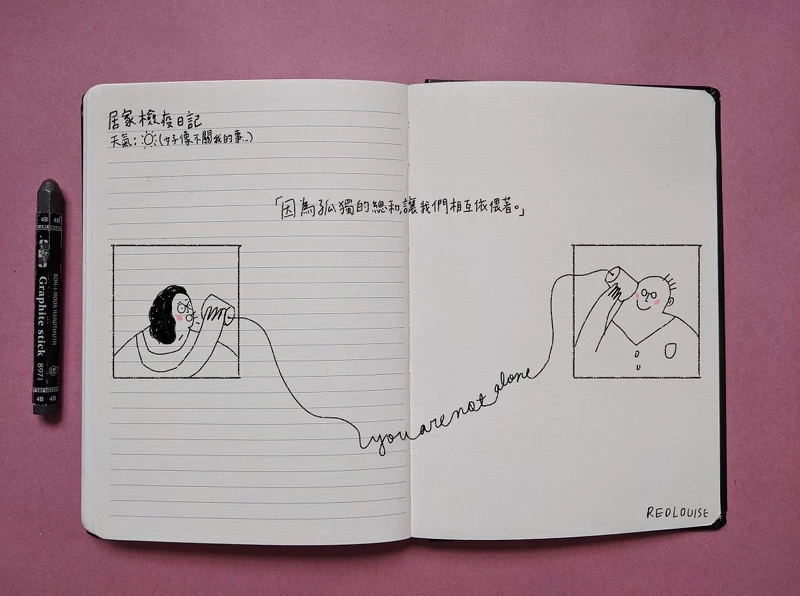 居家檢疫日記
天氣：(好像不關我的事...)
「因為孤獨的總和,讓我們相互依偎著。」
you are not alone
REDLOUISE
4B 4B
KOH-I-NOOR HARDTMUTH
Graphite stick
8971
4B 4B